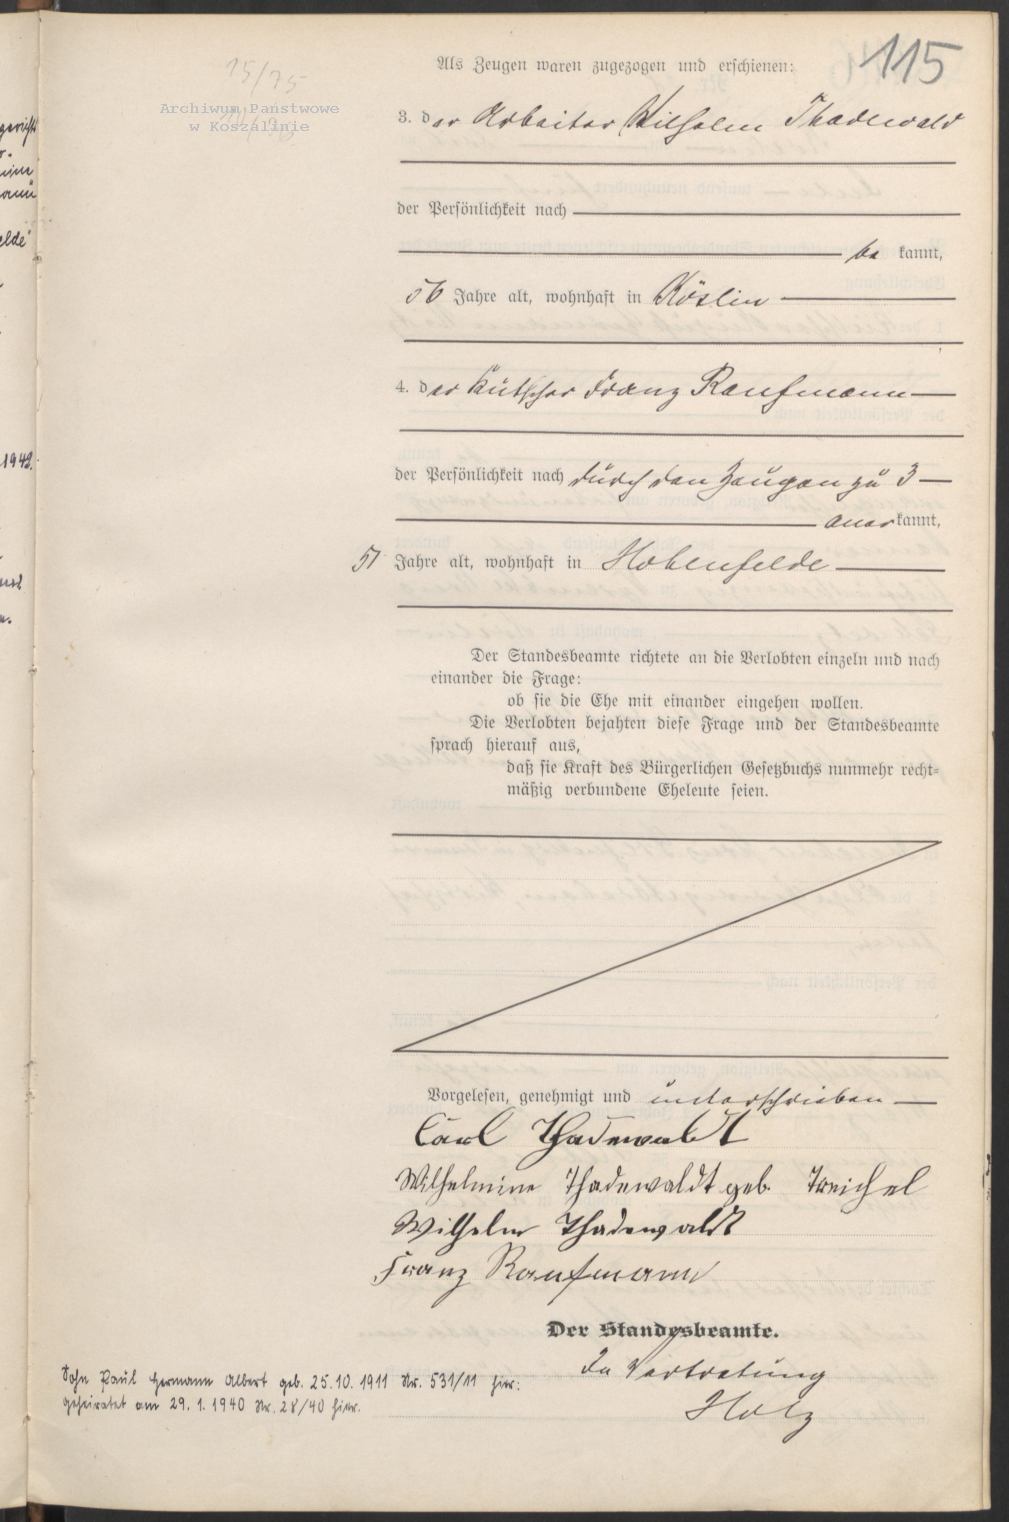 115
15/75
Archiwum Państwowe
w Koszalinie
Als Zeugen waren zugezogen und erschienen:
3. der Arbeiter Wilhelm Thadewald
der Persönlichkeit nach
be kannt,
56 Jahre alt, wohnhaft in Köslin
4. der Kutscher Franz Raufmann
der Persönlichkeit nach durch den Zeugen zu 3
aner kannt,
51 Jahre alt, wohnhaft in Hohenfelde
Der Standesbeamte richtete an die Verlobten einzeln und nach
einander die Frage:
ob sie die Ehe mit einander eingehen wollen.
Die Verlobten bejahten diese Frage und der Standesbeamte
sprach hierauf aus,
daß sie Kraft des Bürgerlichen Gesetzbuchs nunmehr recht-
mäßig verbundene Eheleute seien.
Vorgelesen, genehmigt und unterschrieben
Carl Thadewaldt
Wilhelmine Thadewaldt geb. Treichel
Wilhelm Thadewaldt
Franz Raufmann
Der Standesbeamte.
In Vertretung
Holz
Sohn Paul Hermann Albert geb. 25.10.1911 Nr. 531/11 hier:
geheiratet am 29.1.1940 Nr. 28/40 hier.